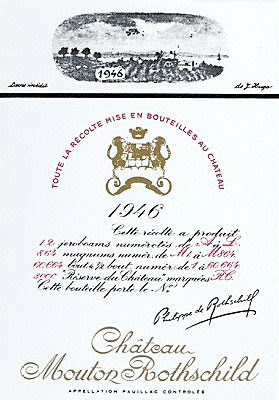 1946
dessin inédit de J. Hugo
TOUTE LA RÉCOLTE MISE EN BOUTEILLES AU CHÂTEAU
1946
Cette récolte a produit
12 jeroboams numérotés de A à L
864 magnums numér. de M1 à M864
60.664 bout. & 1/2 bout. numér. de 1 à 60.664
2000 "Réserve du Château" marquées R.C.
Cette bouteille porte le No
Philippe de Rothschild
Château
Mouton Rothschild
APPELLATION PAUILLAC CONTROLÉE